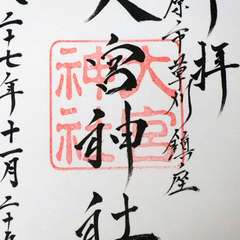 拝
原市草刈鎮座
大宮神社
大宮
神社
二十七年十一月二十